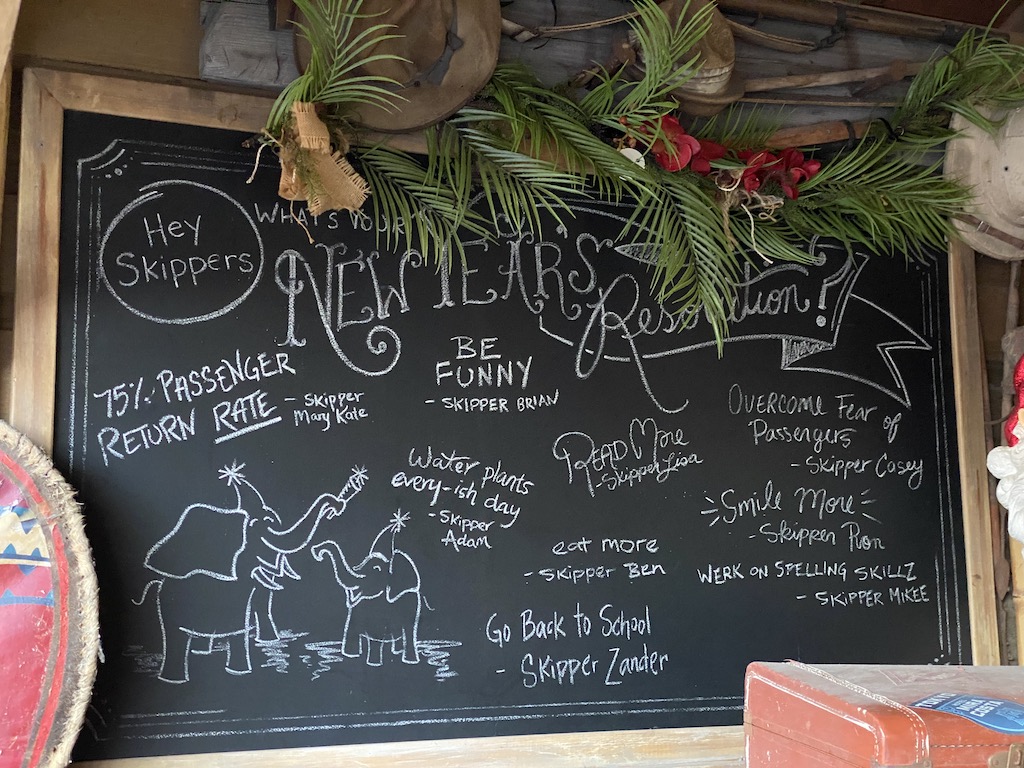 Hey
Skippers
WHAT'S YOUR
NEW YEAR'S
Resolution?
75% PASSENGER
RETURN RATE
- Skipper
Mary Kate
BE
FUNNY
- SKIPPER BRIAN
OVERCOME Fear of
Passengers
- Skipper Casey
READ More
- Skipper Lisa
Water plants
every-ish day
- Skipper
Adam
Smile More
- Skipper Ron
eat more
- Skipper Ben
WERK ON SPELLING SKILLZ
- SKIPPER MIKEE
Go Back to School
- Skipper Zander